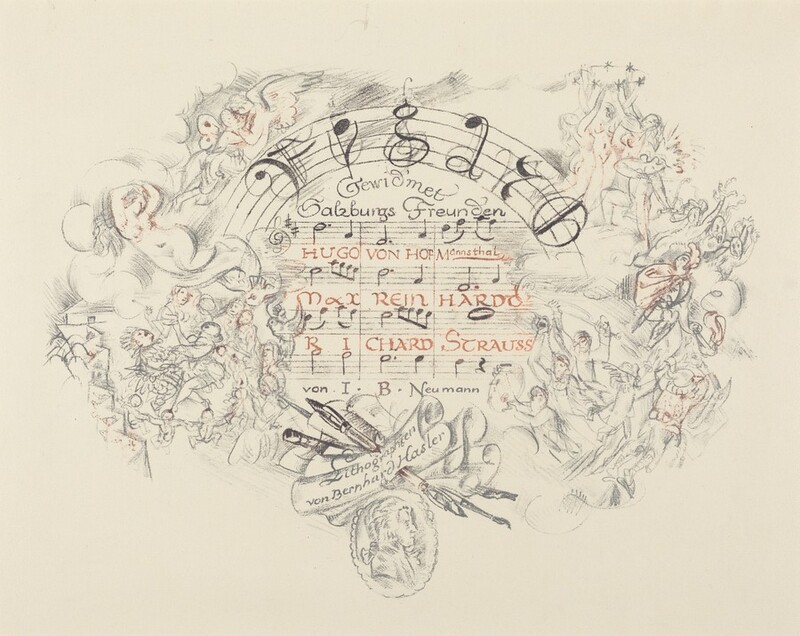 Figaro
Gewidmet
Salzburgs Freunden
HUGO VON HOFMannsthal
MaX REIN HARDT
R I CHARD STRAUSS
von I · B · Neumann
Lithographien
von Bernhard Hasler